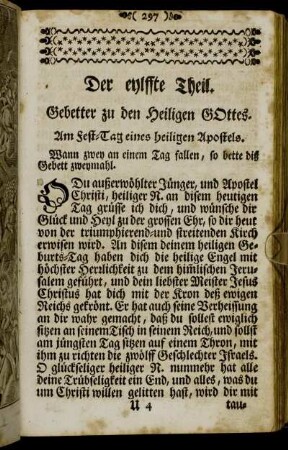 ( 297 )
Der eylffte Theil.
Gebetter zu den Heiligen GOttes.
Am Fest-Tag eines heiligen Apostels.
Wann zwey an einem Tag fallen, so bette diß
Gebett zweymahl.
O Du außerwöhlter Jünger, und Apostel
Christi, heiliger N. an disem heutigen
Tag grüsse ich dich, und wünsche dir
Glück und Heyl zu der grossen Ehr, so dir heut
von der triumphierend-und streitenden Kirch
erwisen wird. An disem deinem heiligen Ge-
burts-Tag haben dich die heilige Engel mit
höchster Herrlichkeit zu dem him̃lischen Jeru-
salem geführt, und dein liebster Meister Jesus
Christus hat dich mit der Kron deß ewigen
Reichs gekrönt. Er hat auch seine Verheissung
an dir wahr gemacht, daß du sollest ewiglich
sitzen an seinem Tisch in seinem Reich, und sollst
am jüngsten Tag sitzen auf einem Thron, mit
ihm zu richten die zwölff Geschlechter Jsraels.
O glückseliger heiliger N. nunmehr hat alle
deine Trübseligkeit ein End, und alles, was du
um Christi willen gelitten hast, wird dir mit
U 4 tau-